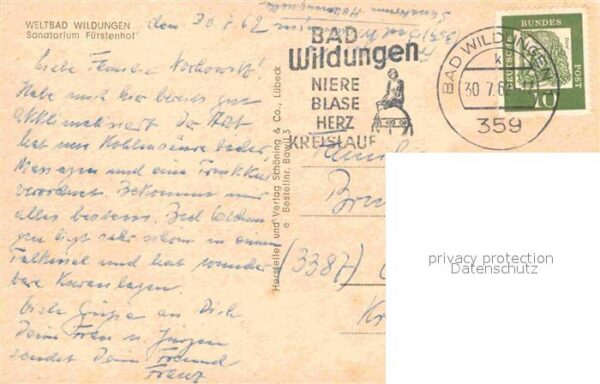 WELTBAD WILDUNGEN
Sanatorium Fürstenhof
den 30.7.62
Liebe Familie
Habe mich hier bereits gut
akklimatisiert. Der Arzt
hat mir Kohlensäurebäder,
Massagen und eine Trinkkur
verordnet. Bekommt mir
alles bestens. Bad Wildun-
gen liegt sehr schön in einem
Talkessel und hat wunder
bare Kuranlagen.
Viele Grüße an Dich
Deine Frau u. Jürgen
sendet Dein Freund
Franz
Hersteller und Verlag Schöning & Co., Lübeck
Bestellnr. BawiL3
BAD
Wildungen
NIERE
BLASE
HERZ
KREISLAUF
BAD WILDUNGEN
30.7.62
359
DEUTSCHE BUNDESPOST
10
(3387)
privacy protection
Datenschutz